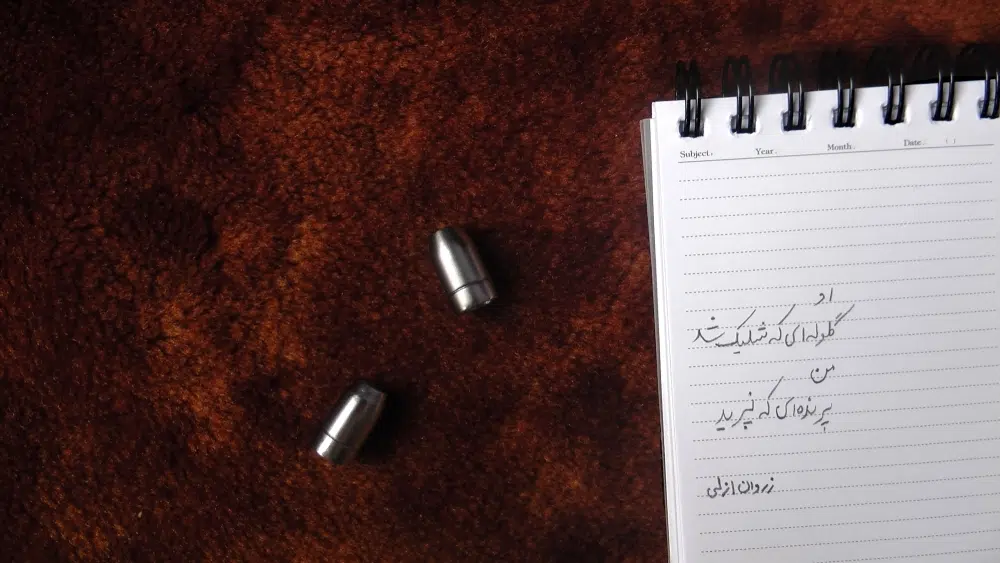 Subject. Year. Month. Date. ( )
او
گلوله‌ای که شلیک شد
من
پرنده‌ای که نپرید
زروان ازلی